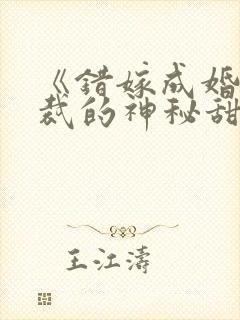 《错嫁成婚
裁的神秘甜
王江濤